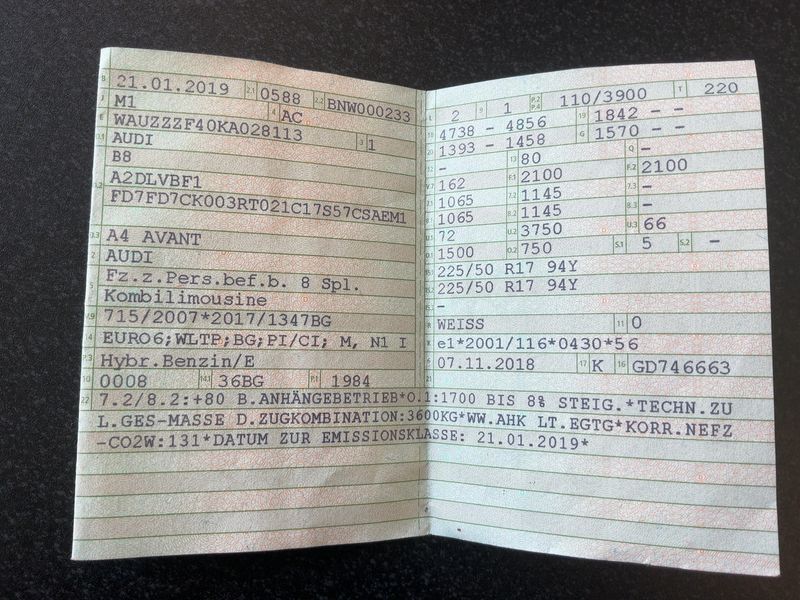 B 21.01.2019 2.1 0588 2.2 BNW000233
J M1 4 AC
E WAUZZZF40KA028113 3 1
AUDI
B8
A2DLVBF1
FD7FD7CK003RT021C17S57CSAEM1
D.3 A4 AVANT
2 AUDI
5 Fz.z.Pers.bef.b. 8 Spl.
Kombilimousine
V.9 715/2007*2017/1347BG
14 EURO6;WLTP;BG;PI/CI; M, N1 I
P.3 Hybr.Benzin/E
10 0008 14.1 36BG P.1 1984
L 2 9 1 P.2 P.4 110/3900 T 220
18 4738 - 4856 19 1842 - -
20 1393 - 1458 G 1570 - -
12 - 13 80 Q -
V.7 162 F.1 2100 F.2 2100
7.1 1065 7.2 1145 7.3 -
8.1 1065 8.2 1145 8.3 -
U.1 72 U.2 3750 U.3 66
O.1 1500 O.2 750 S.1 5 S.2 -
15.1 225/50 R17 94Y
15.2 225/50 R17 94Y
-
R WEISS 11 0
K e1*2001/116*0430*56
6 07.11.2018 17 K 16 GD746663
21
22 7.2/8.2:+80 B.ANHÄNGEBETRIEB*O.1:1700 BIS 8% STEIG.*TECHN.ZU
L.GES-MASSE D.ZUGKOMBINATION:3600KG*WW.AHK LT.EGTG*KORR.NEFZ
-CO2W:131*DATUM ZUR EMISSIONSKLASSE: 21.01.2019*